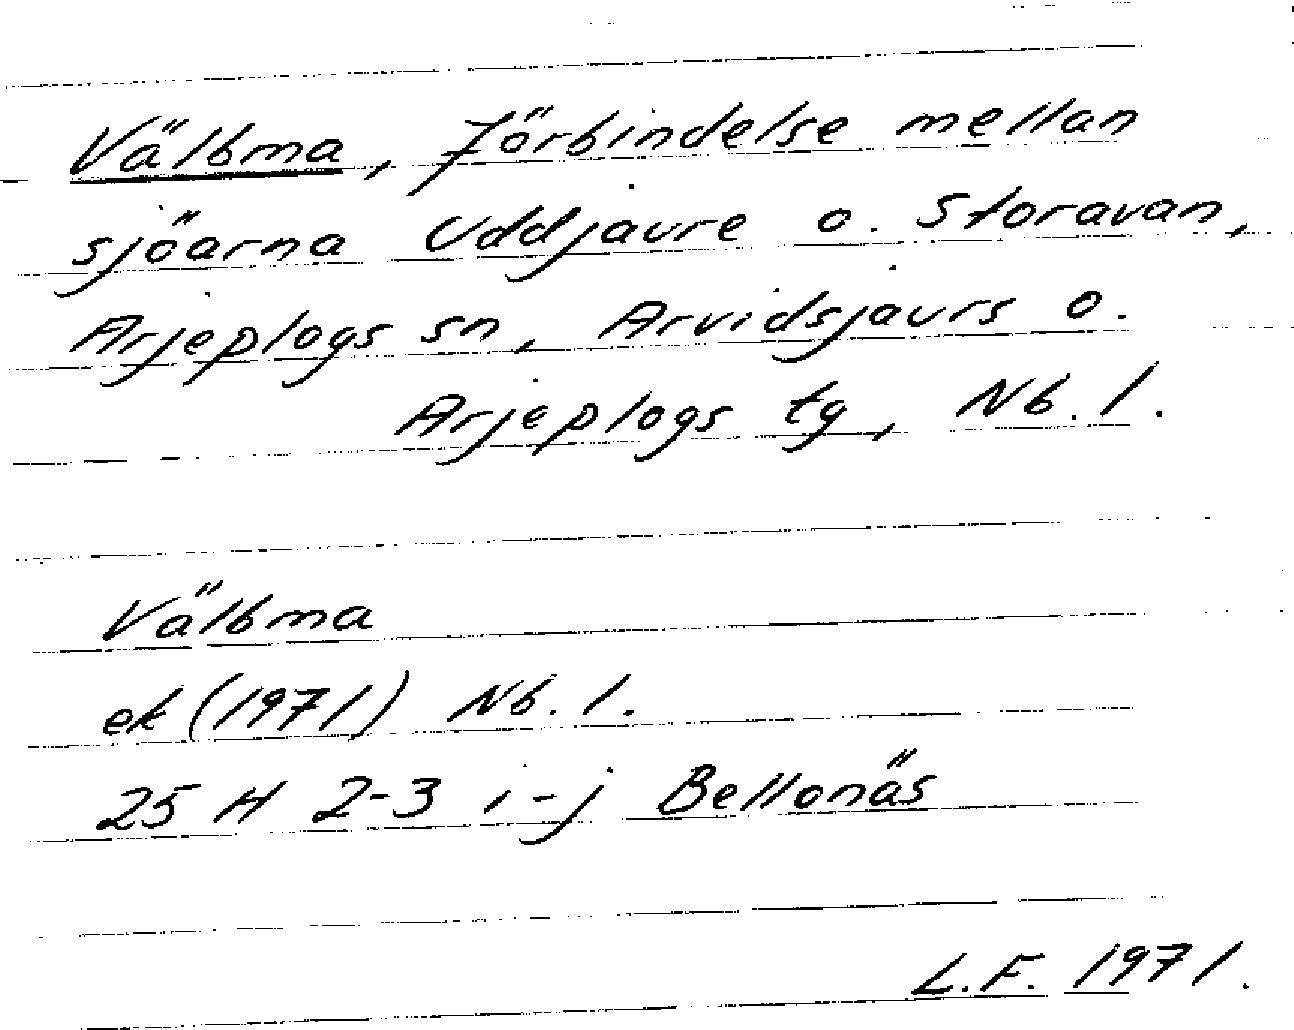 Välbma, förbindelse mellan
sjöarna Uddjaure o. Storavan,
Arjeplogs sn, Arvidsjaurs o.
Arjeplogs tg, Nb. l.
Välbma
ek (1971) Nb. l.
25 H 2-3 i-j Bellonäs
L.F. 1971.